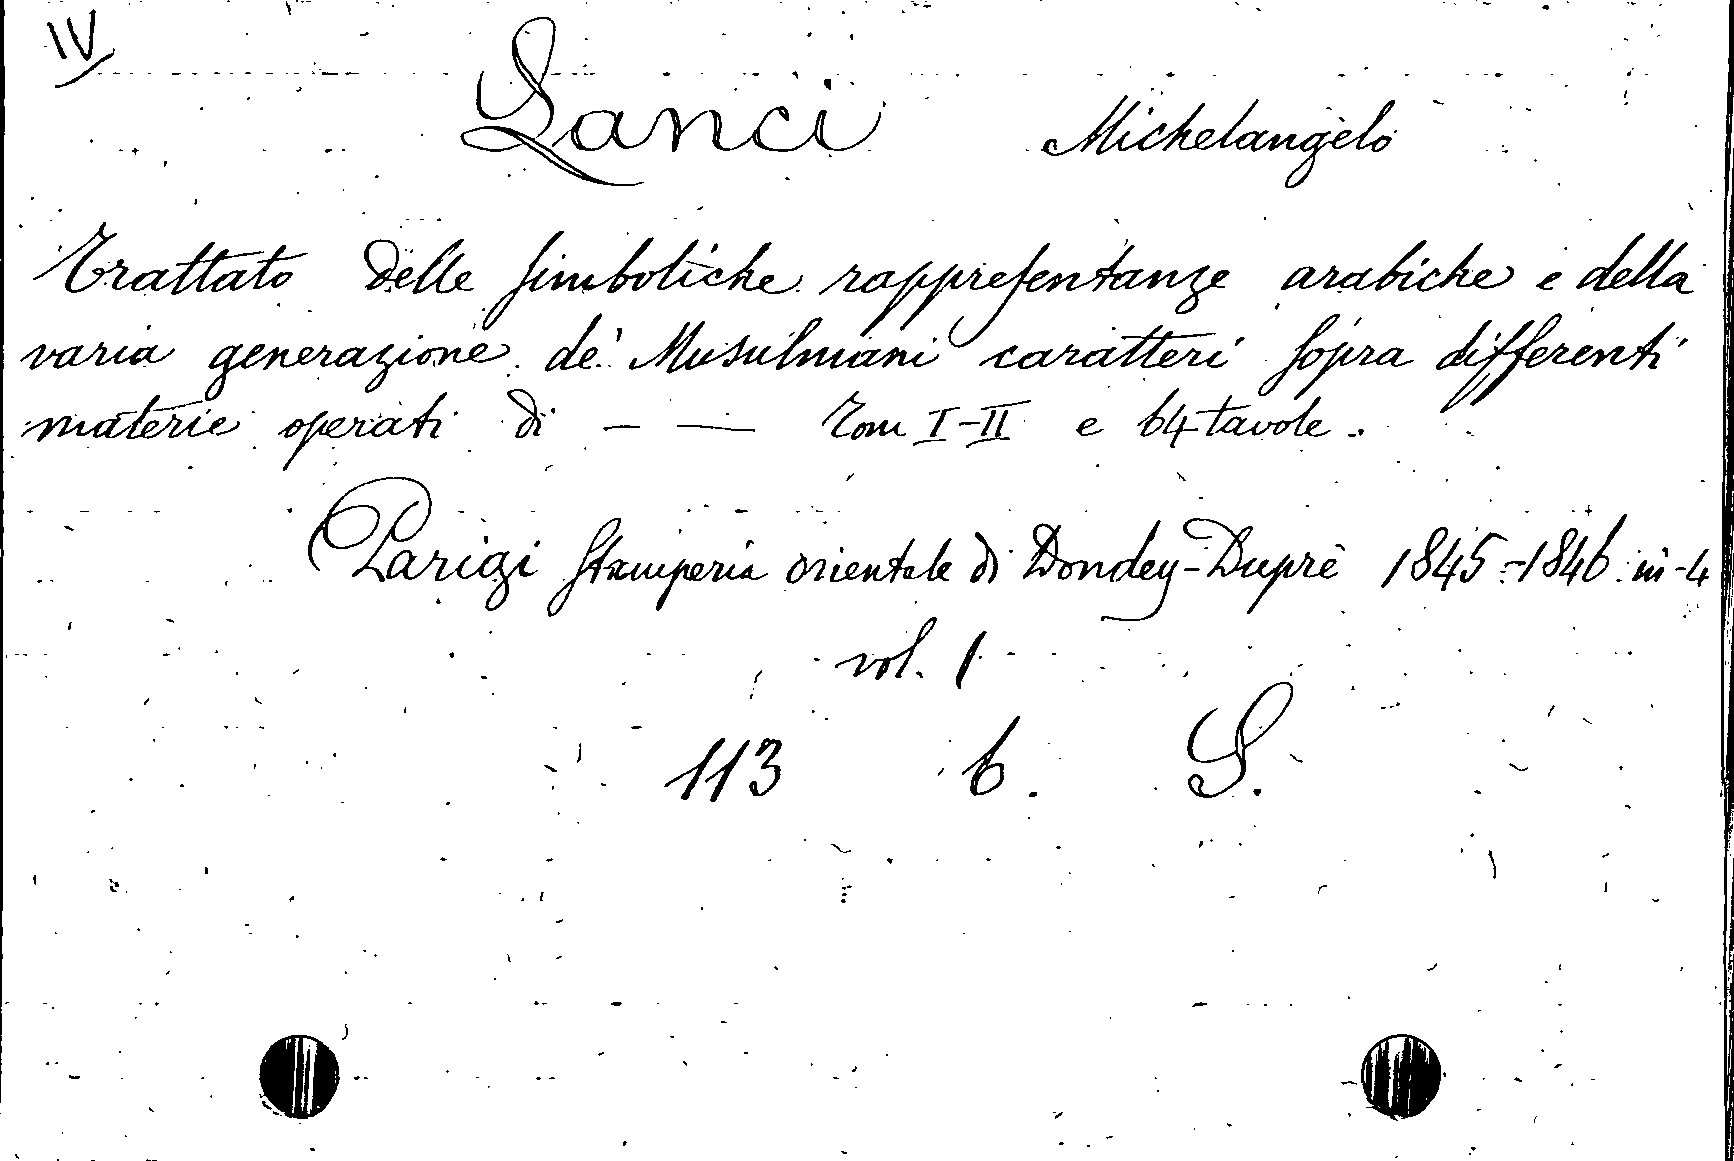 IV
Lanci Michelangelo
Trattato delle simboliche rappresentanze arabiche e della
varia generazione de' Musulmani caratteri sopra differenti
materie operati di — — Tom I-II e 64 tavole.
Parigi Stamperia orientale di Dondey-Dupré 1845-1846 in-4
vol. 1
113 6. S.